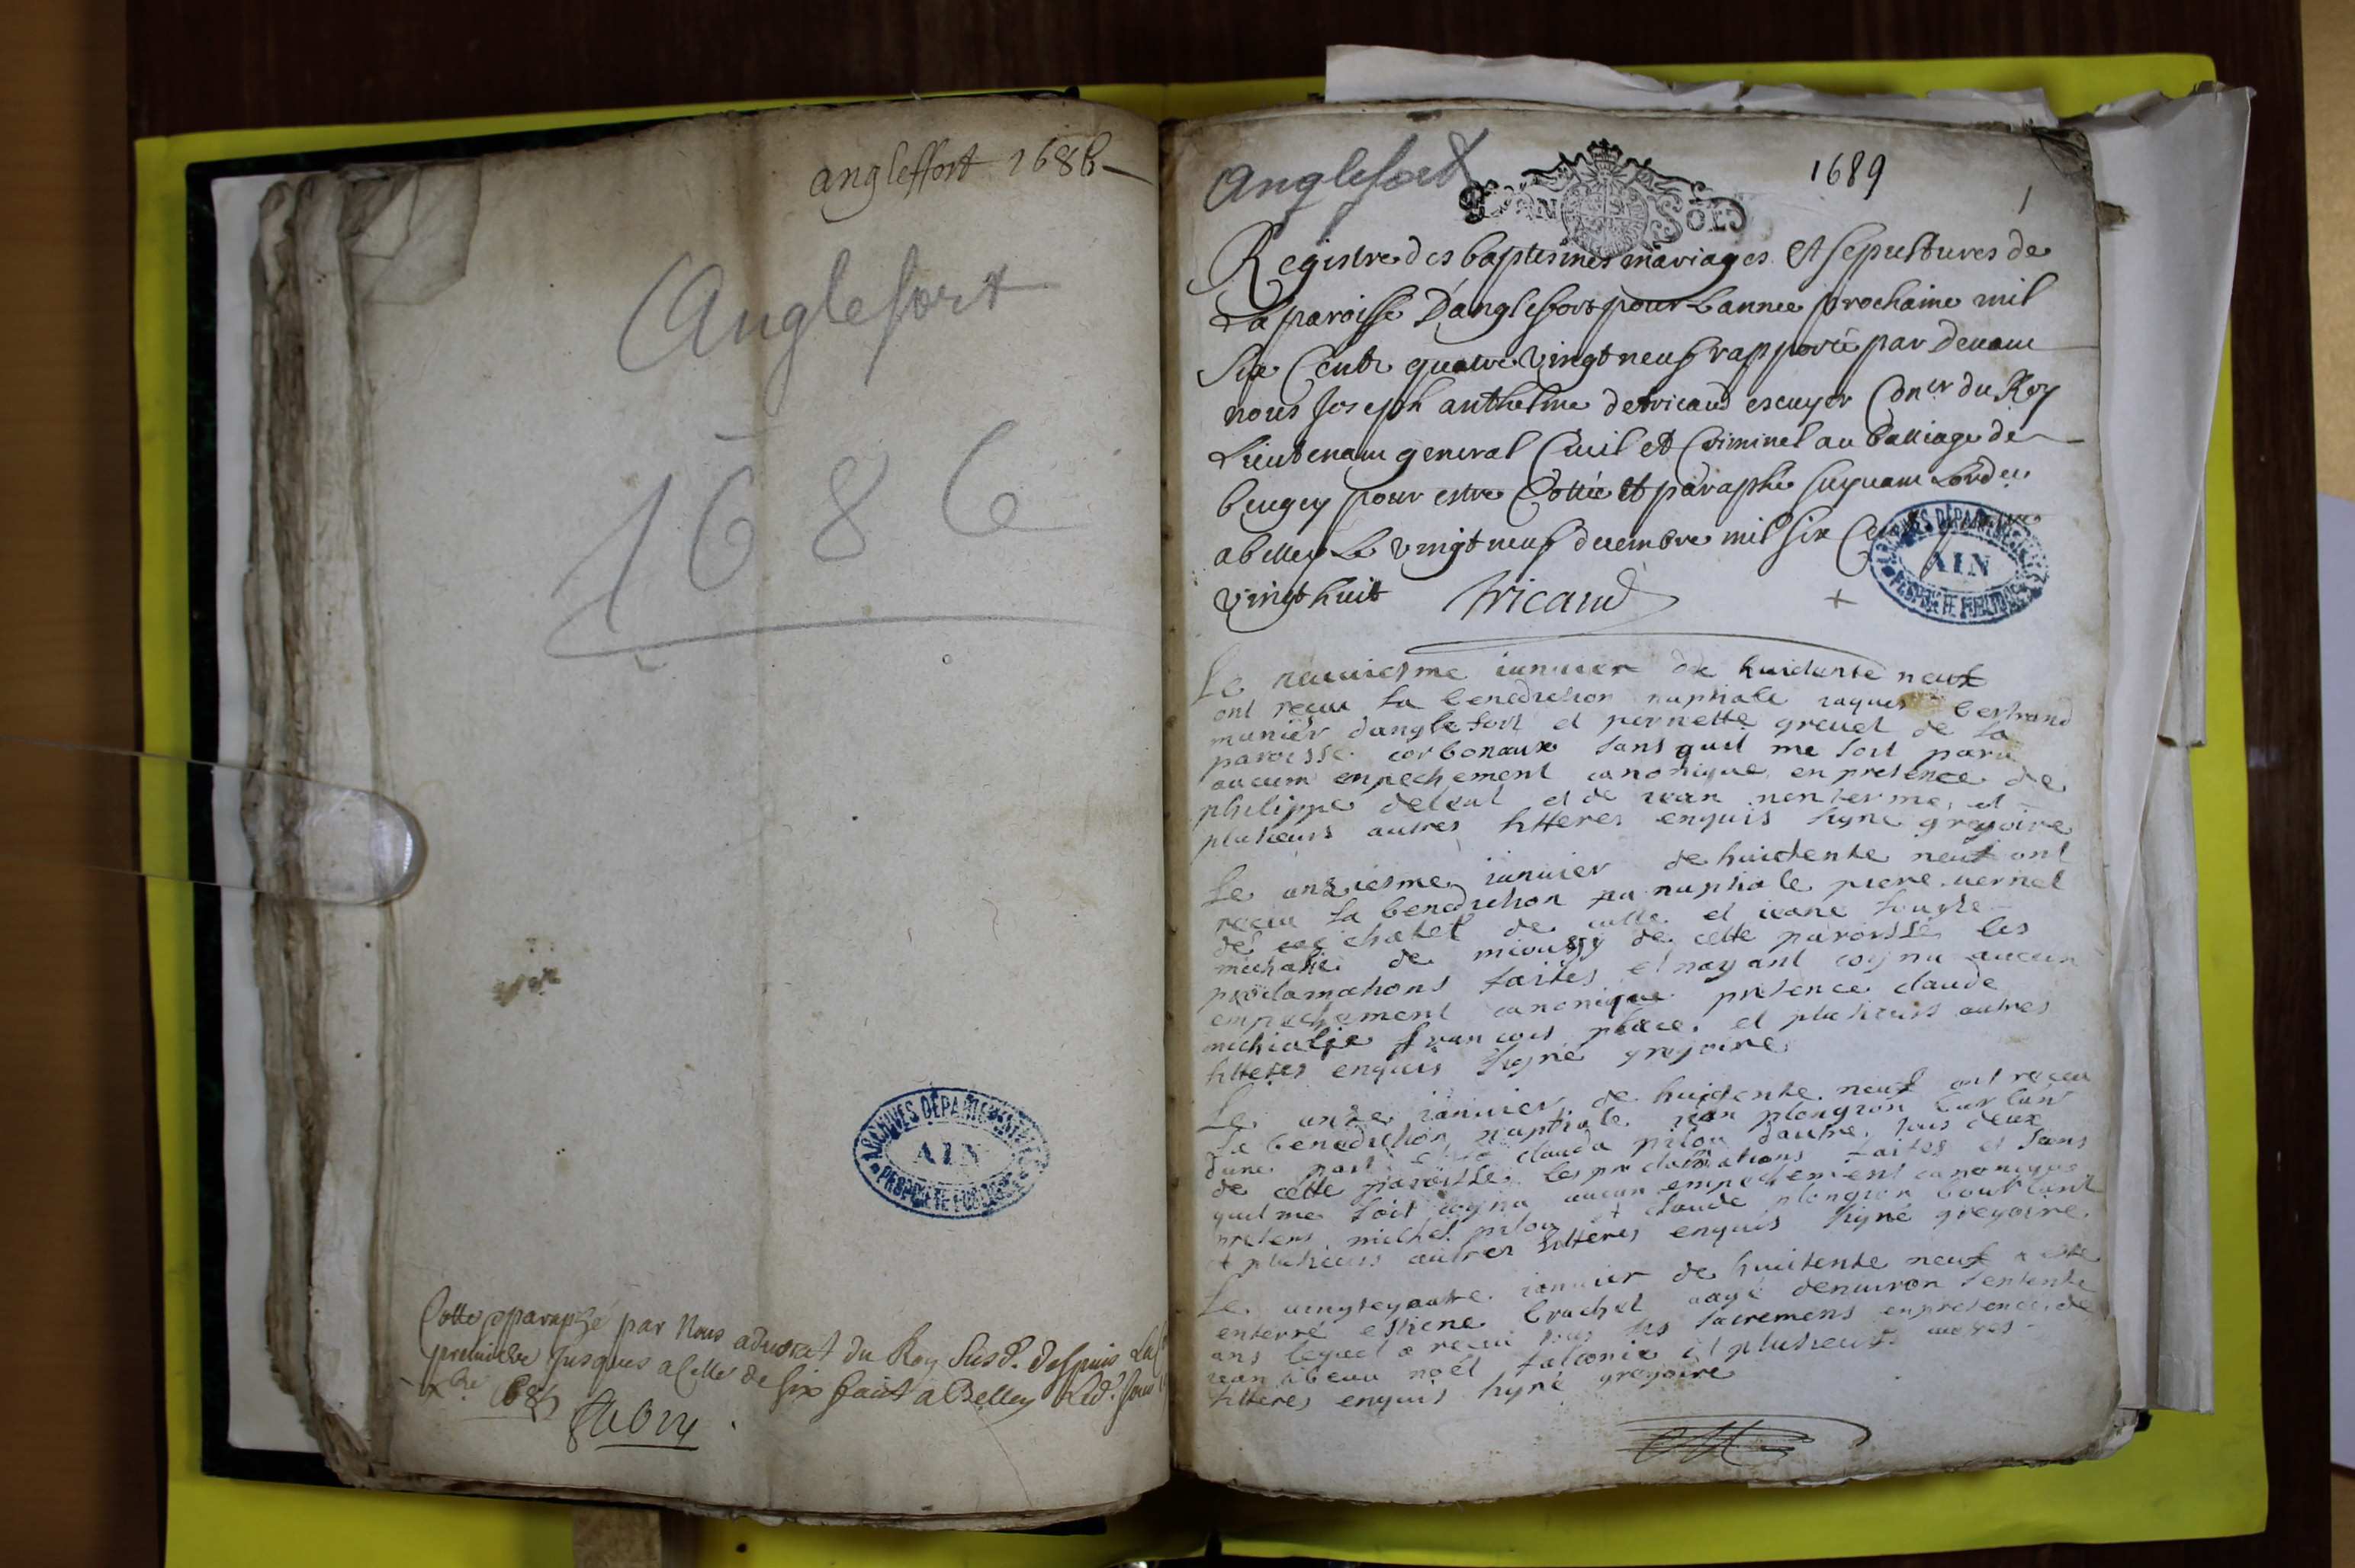 angleffort 1686
Anglefort
1686
ARCHIVES DÉPARTEMENTALES
AIN
PROPRIÉTÉ PUBLIQUE
Cotté et paraphé par Nous advocat du Roy Susd. despuis La
premiere jusques a celle de six fait a Belley Led. jour
xbre 168
Anglefort
1689
1
SOLS
Registre des baptesmes mariages et sepultures de
La paroisse D'anglefort pour Lannee prochaine mil
Six Cents quatre vingt neuf rapporté par devant
nous Joseph anthelme detricaud escuyer Coner du Roy
Lieutenant general Civil et Criminel au balliage de
beugey pour estre Cottée et paraphé suyvant Lordce
a belley Le vingt neuf decembre mil six Cent quatre
vingt huit Tricaud
ARCHIVES DÉPARTEMENTALES
AIN
PROPRIÉTÉ PUBLIQUE
Le neuuiesme ianuier de huictante neuf
ont receu la benediction nuptiale iaques bertrand
munier danglefort et pernette greuet de la
paroisse corbonaux sans quil me soit paru
aucum enpechement canonique en presence de
philippe et de iean et
plusieurs autres illteres enquis signe gregoire
Le onziesme ianuier de huictente neuf ont
receu la benediction nuptiale piere uernet
de chatel de culle et ieane
michalie de de cette paroisse les
proclamations faites et nayant cognu aucun
empechement canonique presence claude
michialie francois place et plusieurs autres
illteres enquis signé gregoire
Le onze ianuier de huictente neuf ont receu
la benediction nuptiale iean plongion
dune part et clauda pilou dautre tous deux
de cette paroisse les proclamations faites et sans
quil me soit cognu aucun empechement canonique
presens michel pilou et claude plongion
et plusieurs autres illteres enquis signé gregoire
Le uingteyoatre ianuier de huictente neuf a este
enterré estiene brachet aagé denuiron septente
ans lequel a receu tous les sacremens en presence de
iean noël falconie et plusieurs autres
illteres enquis signé gregoire